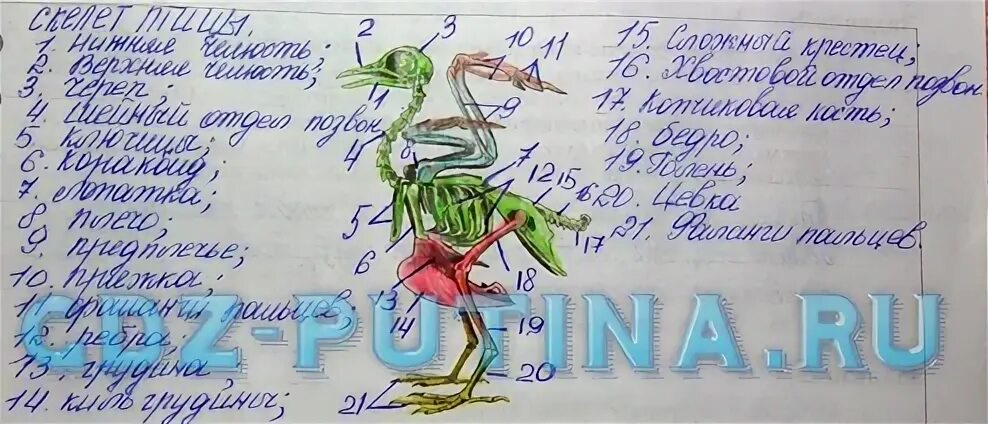 скелет птицы.
1. Нижняя челюсть;
2. Верхняя челюсть;
3. Череп.
4. Шейный отдел позвон.
5. Ключицы;
6. Коракоид;
7. Лопатка;
8 плечо;
9. предплечье;
10. пряжка;
11 фаланги пальцев;
12. ребра;
13. грудина
14. киль грудины;
2
3
10
11
1
9
4
8
7
12
15
5
16
6
17
18
13
14
19
20
21
15. Сложный крестец;
16. Хвостовой отдел позвон.
17. Копчиковая кость;
18. бедро;
19. Голень;
20. Цевка
21. Фаланги пальцев.
GDZ-PUTINA.RU